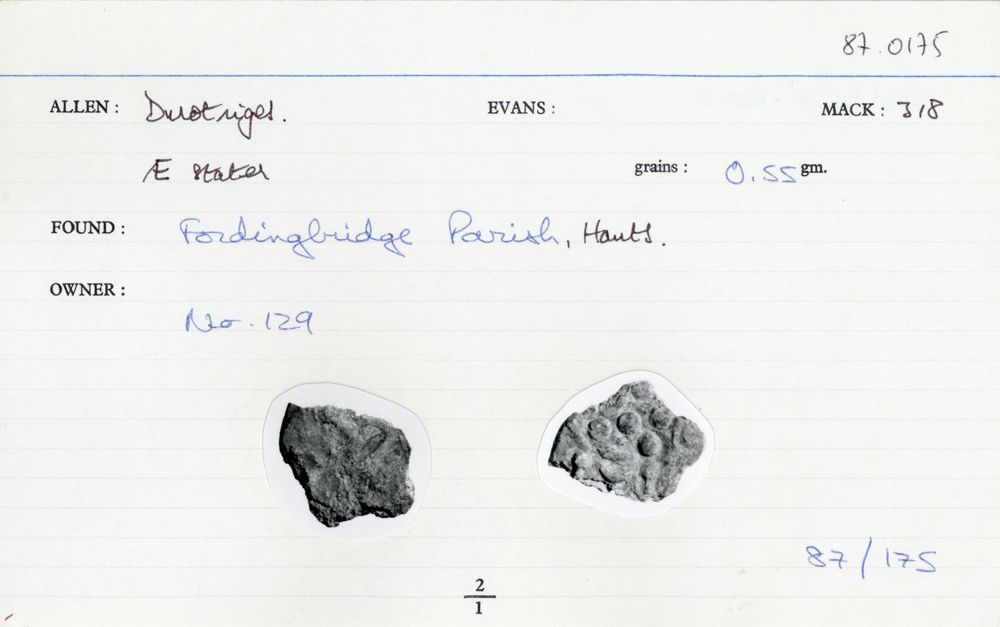 87.0175
ALLEN : Durotriges. EVANS : MACK : 318
Æ Stater grains : 0.55 gm.
FOUND : Fordingbridge Parish, Hants.
OWNER :
No. 129
87/175
2/1